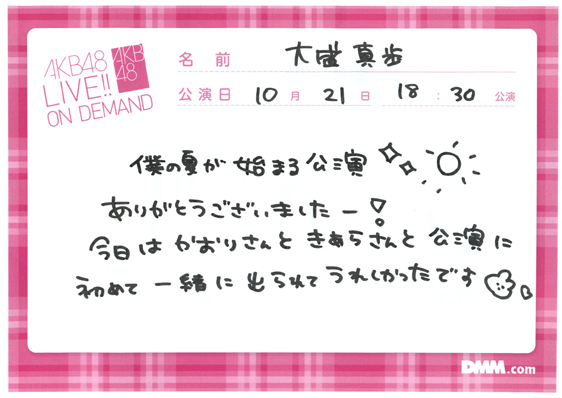 AKB48
LIVE!!
ON DEMAND
AKB
48
名前 大盛真歩
公演日 10月 21日 18:30 公演
僕の夏が始まる公演
ありがとうございましたー!
今日は かおりさんと きあらさんと 公演に
初めて 一緒に 出られて うれしかったです
DMM.com